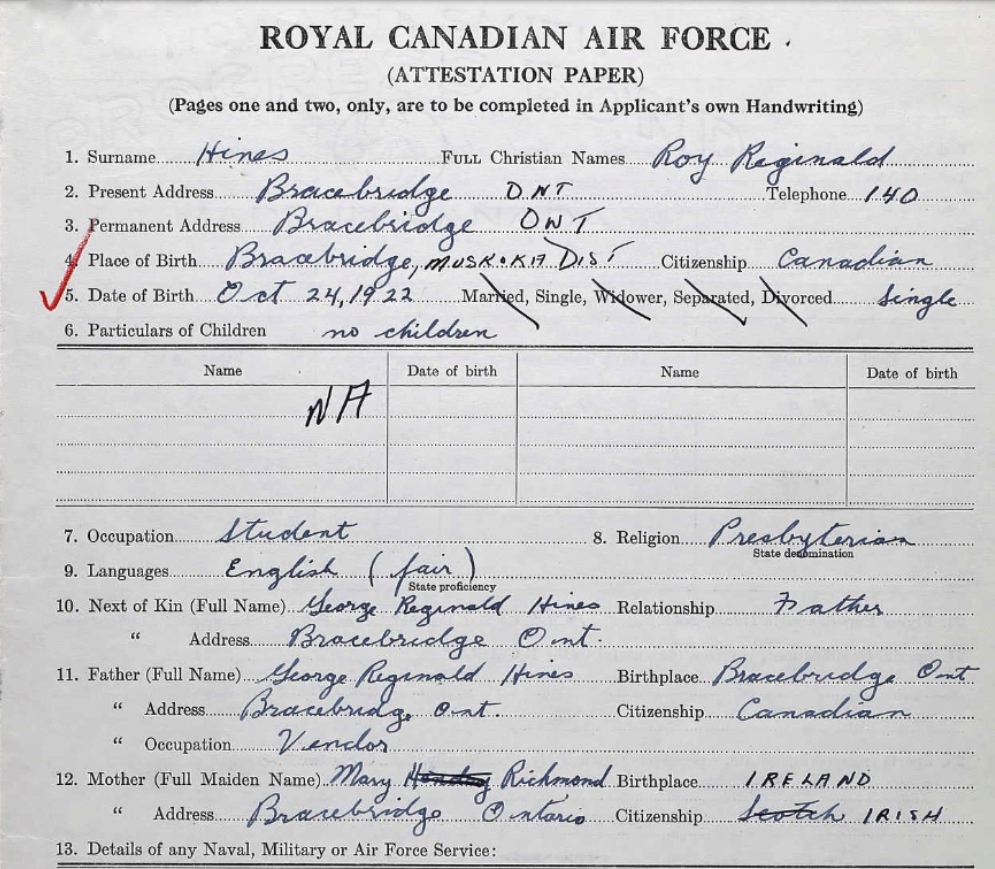 ROYAL CANADIAN AIR FORCE
(ATTESTATION PAPER)
(Pages one and two, only, are to be completed in Applicant's own Handwriting)
1. Surname Hines FULL Christian Names Roy Reginald
2. Present Address Bracebridge ONT Telephone 140
3. Permanent Address Bracebridge ONT
4. Place of Birth Bracebridge, MUSKOKA DIST Citizenship Canadian
5. Date of Birth Oct 24, 1922 Married, Single, Widower, Separated, Divorced Single
6. Particulars of Children no children
Name Date of birth Name Date of birth
NA
7. Occupation Student 8. Religion Presbyterian
State denomination
9. Languages English (fair)
State proficiency
10. Next of Kin (Full Name) George Reginald Hines Relationship Father
" Address Bracebridge Ont.
11. Father (Full Name) George Reginald Hines Birthplace Bracebridge Ont
" Address Bracebridge Ont. Citizenship Canadian
" Occupation Vendor
12. Mother (Full Maiden Name) Mary Richmond Birthplace IRELAND
" Address Bracebridge Ontario Citizenship Scotch IRISH
13. Details of any Naval, Military or Air Force Service: